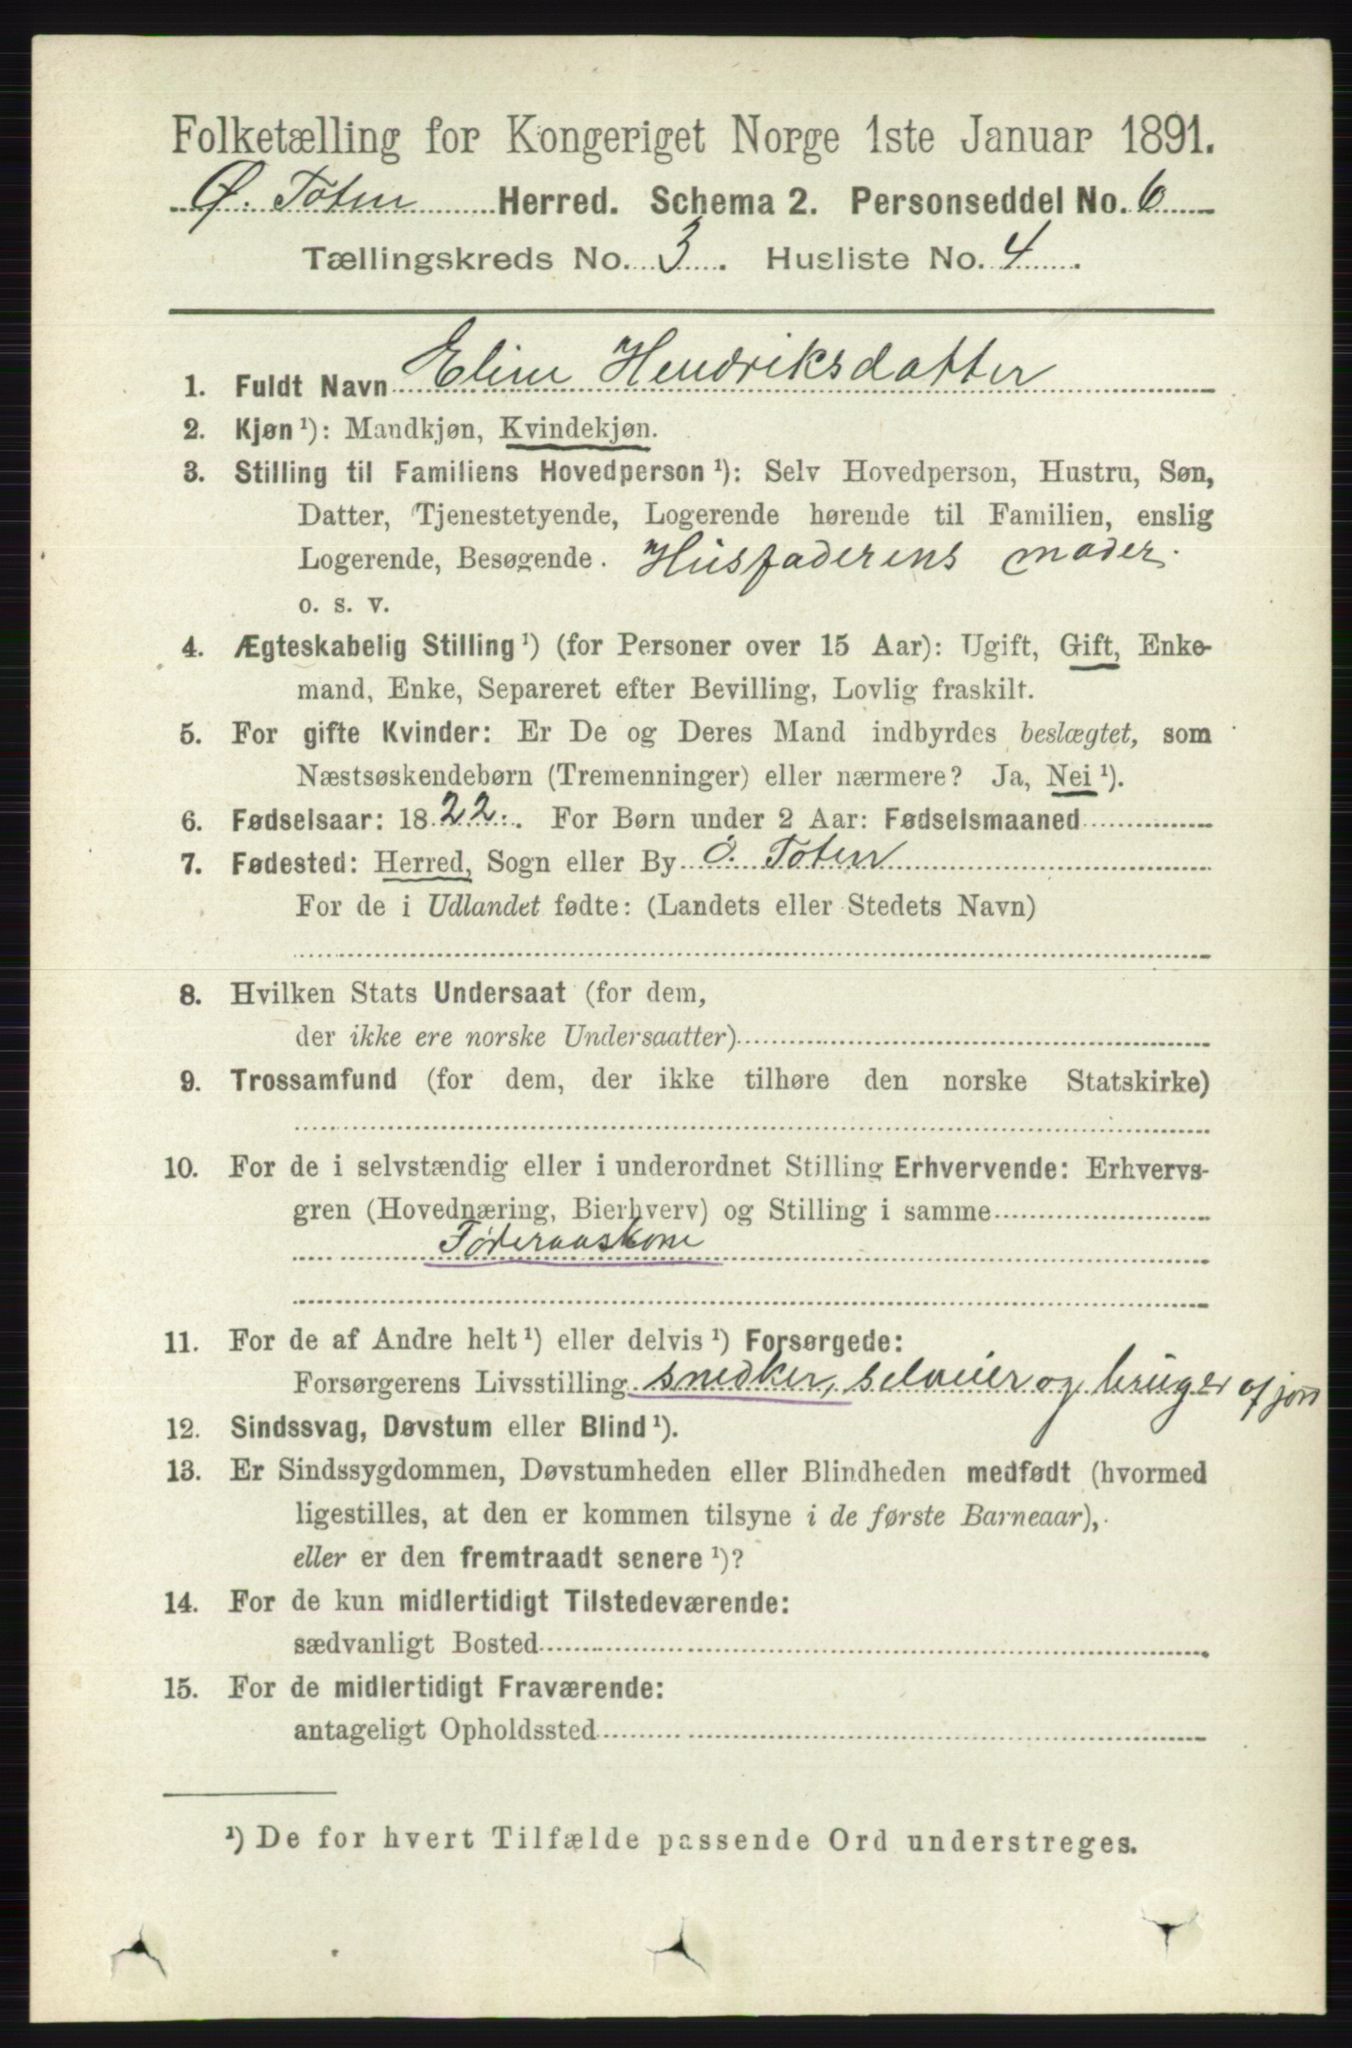 Folketælling for Kongeriget Norge 1ste Januar 1891.
Ø. Toten Herred. Schema 2. Personseddel No. 6
Tællingskreds No. 3. Husliste No. 4.
1. Fuldt Navn Eline Hendriksdatter
2. Kjøn ¹): Mandkjøn, Kvindekjøn.
3. Stilling til Familiens Hovedperson ¹): Selv Hovedperson, Hustru, Søn,
Datter, Tjenestetyende, Logerende hørende til Familien, enslig
Logerende, Besøgende. Husfaderens moder.
o. s. v.
4. Ægteskabelig Stilling ¹) (for Personer over 15 Aar): Ugift, Gift, Enke-
mand, Enke, Separeret efter Bevilling, Lovlig fraskilt.
5. For gifte Kvinder: Er De og Deres Mand indbyrdes beslægtet, som
Næstsøskendebørn (Tremenninger) eller nærmere? Ja, Nei ¹).
6. Fødselsaar: 1822. For Børn under 2 Aar: Fødselsmaaned
7. Fødested: Herred, Sogn eller By Ø. Toten
For de i Udlandet fødte: (Landets eller Stedets Navn)
8. Hvilken Stats Undersaat (for dem,
der ikke ere norske Undersaatter)
9. Trossamfund (for dem, der ikke tilhøre den norske Statskirke)
10. For de i selvstændig eller i underordnet Stilling Erhvervende: Erhvervs-
gren (Hovednæring, Bierhverv) og Stilling i samme
Føderaaskone
11. For de af Andre helt ¹) eller delvis ¹) Forsørgede:
Forsørgerens Livsstilling snedker, selveier og bruger af jord
12. Sindssvag, Døvstum eller Blind ¹).
13. Er Sindssygdommen, Døvstumheden eller Blindheden medfødt (hvormed
ligestilles, at den er kommen tilsyne i de første Barneaar),
eller er den fremtraadt senere ¹)?
14. For de kun midlertidigt Tilstedeværende:
sædvanligt Bosted
15. For de midlertidigt Fraværende:
antageligt Opholdssted
¹) De for hvert Tilfælde passende Ord understreges.